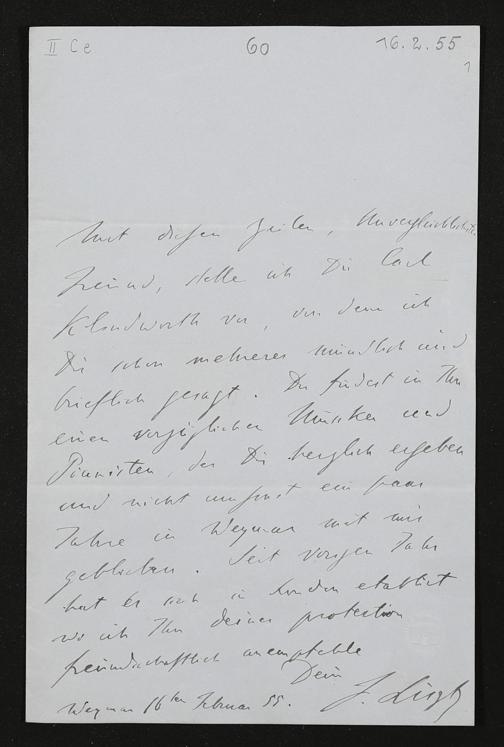 II Ce 60 16.2.55
1
Mit diesen Zeilen, Unvergleichlichster
Freund, stelle ich Dir Carl
Klindworth vor, von dem ich
Dir schon mehreres mündlich und
brieflich gesagt. Du findest in Ihm
einen vorzüglichen Musiker und
Pianisten, der Dir herzlich ergeben
und nicht umsonst ein paar
Jahre in Weymar mit mir
geblieben. Seit vorigen Jahr
hat Er sich in London etablirt
wo ich Ihn Deiner protection
freundschaftlich anempfehle
Dein
Weymar 16ten Februar 55. F. Liszt